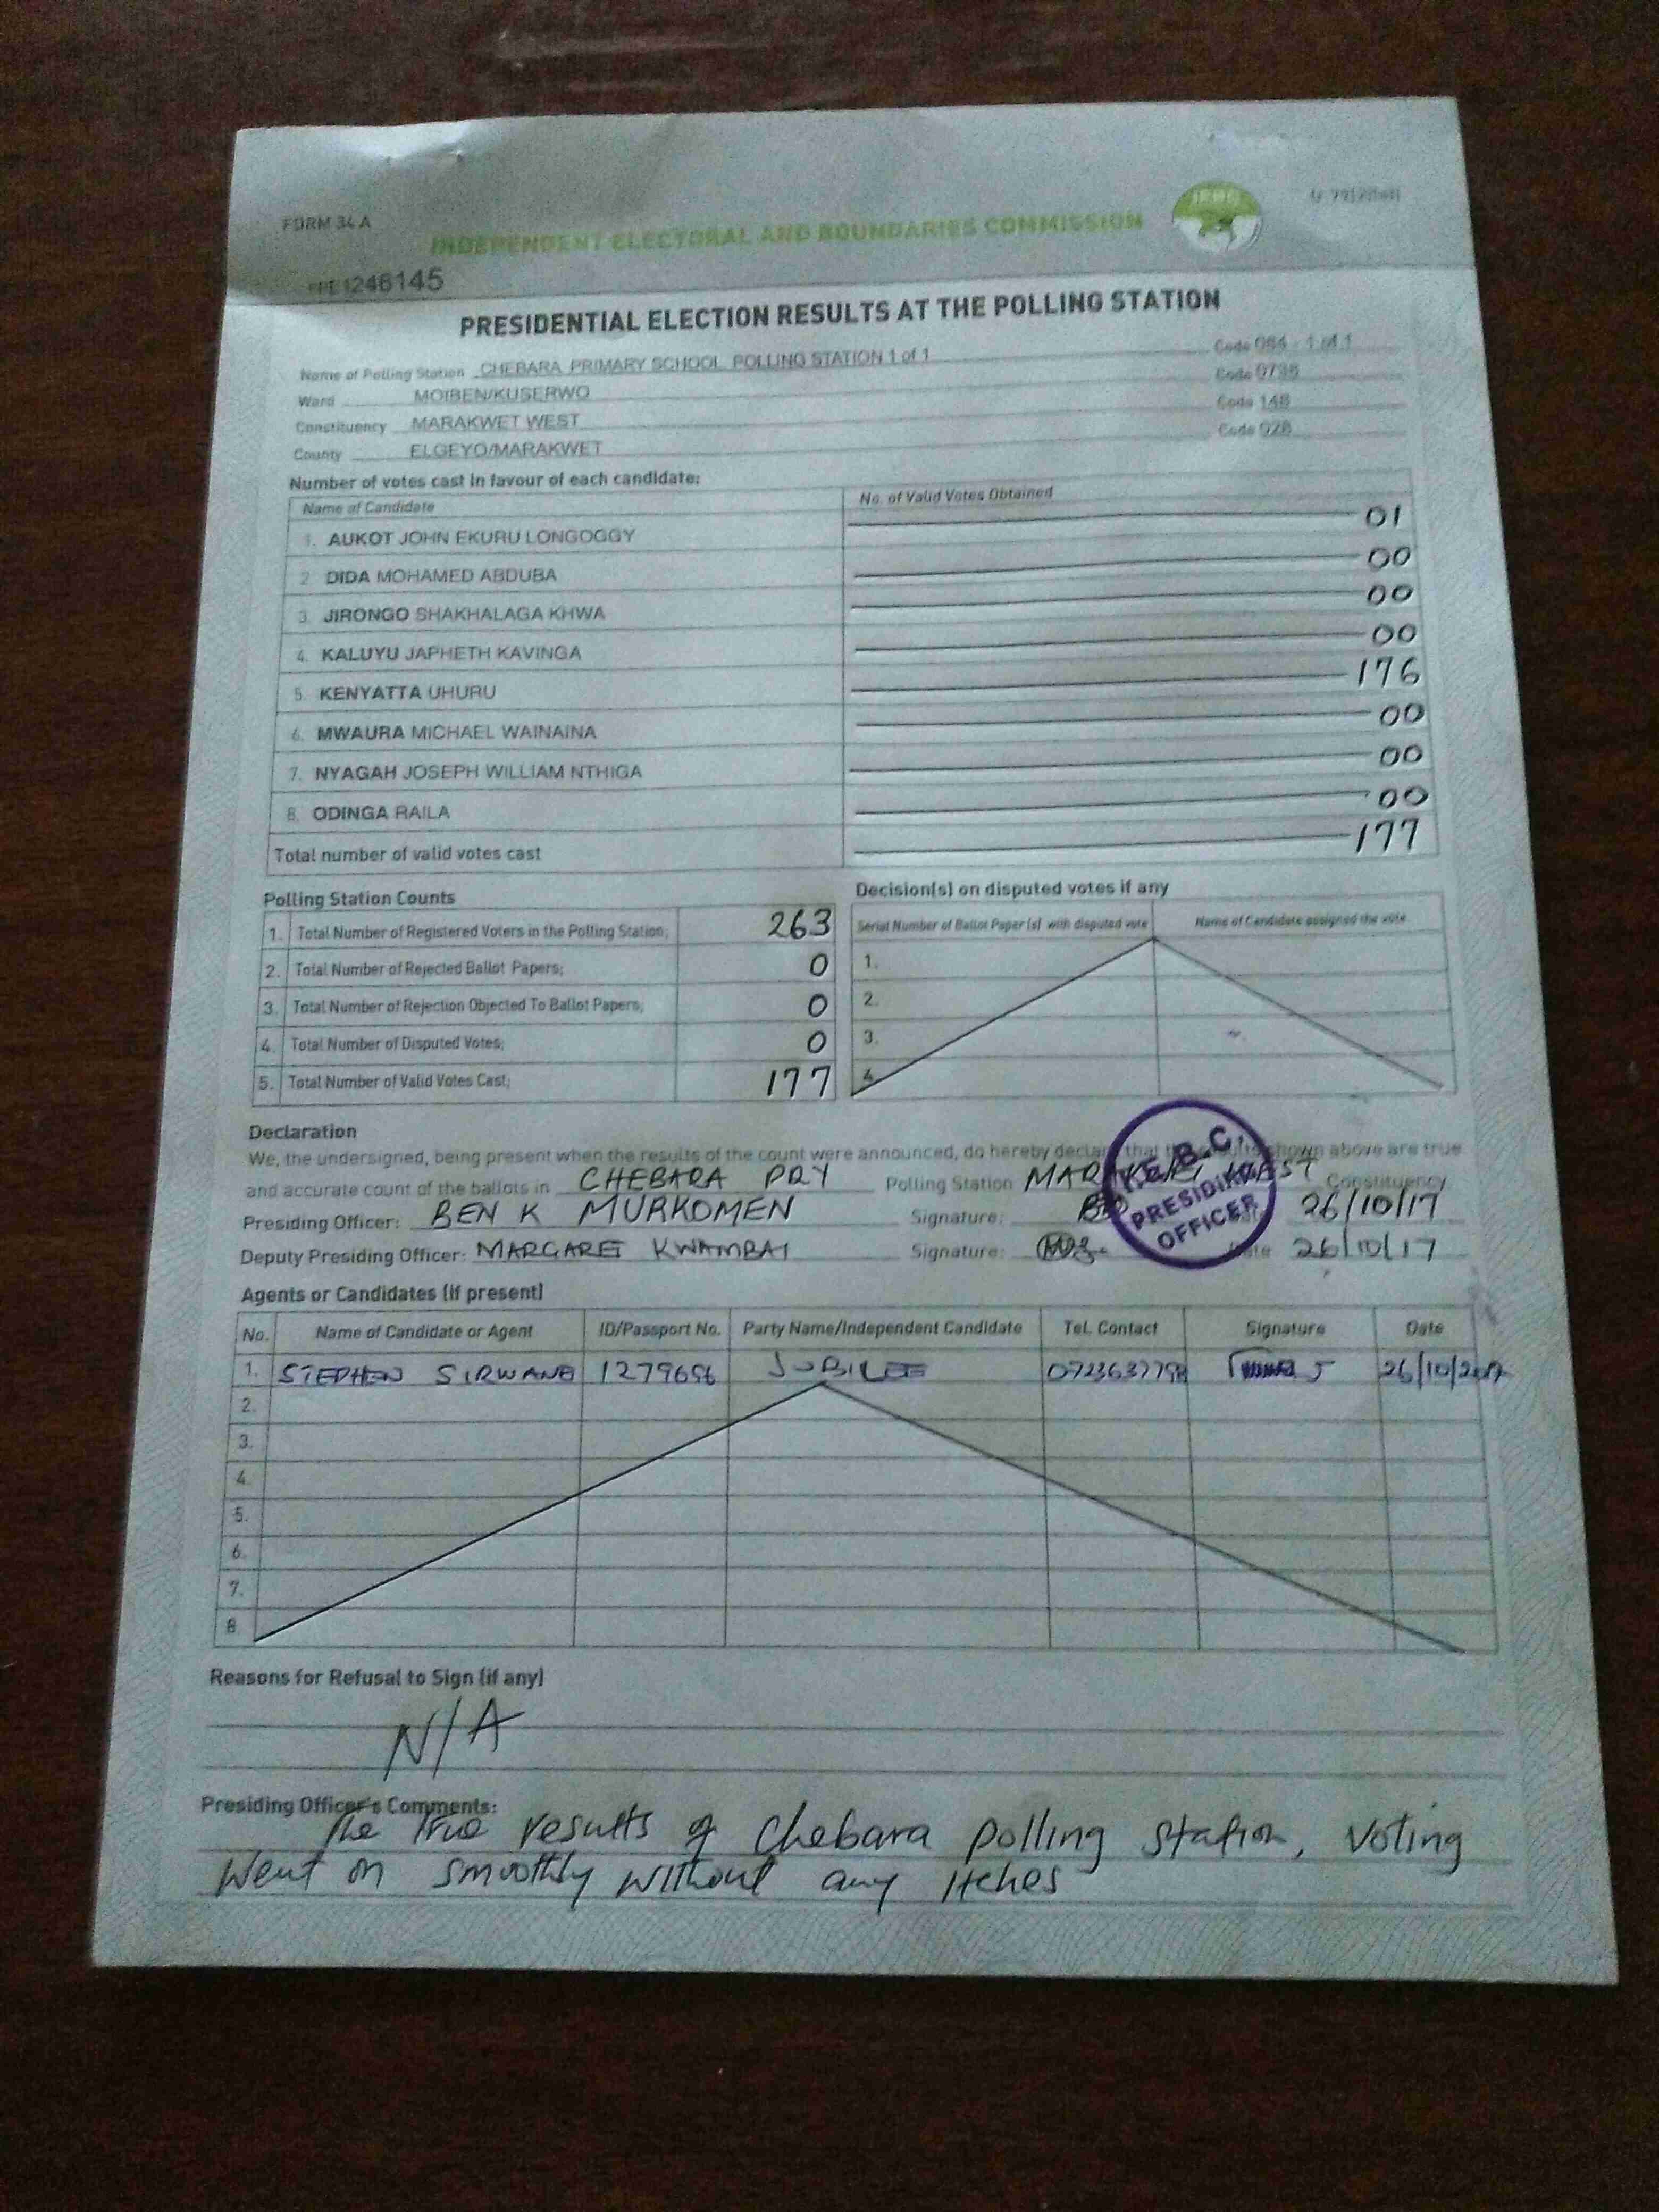 FORM 34 A
INDEPENDENT ELECTORAL AND BOUNDARIES COMMISSION
IEBC
1246145
PRESIDENTIAL ELECTION RESULTS AT THE POLLING STATION
Name of Polling Station CHEBARA PRIMARY SCHOOL POLLING STATION 1 of 1 Code 064 - 1 of 1
Ward MOIBEN/KUSERWO Code
Constituency MARAKWET WEST Code 148
County ELGEYO/MARAKWET Code 028
Number of votes cast in favour of each candidate:
Name of Candidate No. of Valid Votes Obtained
1. AUKOT JOHN EKURU LONGOGGY 01
2. DIDA MOHAMED ABDUBA 00
3. JIRONGO SHAKHALAGA KHWA 00
4. KALUYU JAPHETH KAVINGA 00
5. KENYATTA UHURU 176
6. MWAURA MICHAEL WAINAINA 00
7. NYAGAH JOSEPH WILLIAM NTHIGA 00
8. ODINGA RAILA 00
Total number of valid votes cast 177
Polling Station Counts
1. Total Number of Registered Voters in the Polling Station; 263
2. Total Number of Rejected Ballot Papers; 0
3. Total Number of Rejection Objected To Ballot Papers; 0
4. Total Number of Disputed Votes; 0
5. Total Number of Valid Votes Cast; 177
Decision(s) on disputed votes if any
Serial Number of Ballot Paper (s) with disputed vote Name of Candidate assigned the vote
1.
2.
3.
4.
Declaration
We, the undersigned, being present when the results of the count were announced, do hereby declare that the results shown above are true
and accurate count of the ballots in CHEBARA PRY Polling Station MARAKWET WEST Constituency
Presiding Officer: BEN K MURKOMEN Signature: Date 26/10/17
Deputy Presiding Officer: MARGARET KWAMBAI Signature: Date 26/10/17
I.E.B.C.
PRESIDING
OFFICER
Agents or Candidates (if present)
No. Name of Candidate or Agent ID/Passport No. Party Name/Independent Candidate Tel. Contact Signature Date
1. STEPHEN SIRWANE 1279656 JUBILEE 26/10/2017
2.
3.
4.
5.
6.
7.
8
Reasons for Refusal to Sign (if any)
N/A
Presiding Officer's Comments:
The True results of Chebara polling station, Voting
went on smoothly without any itches